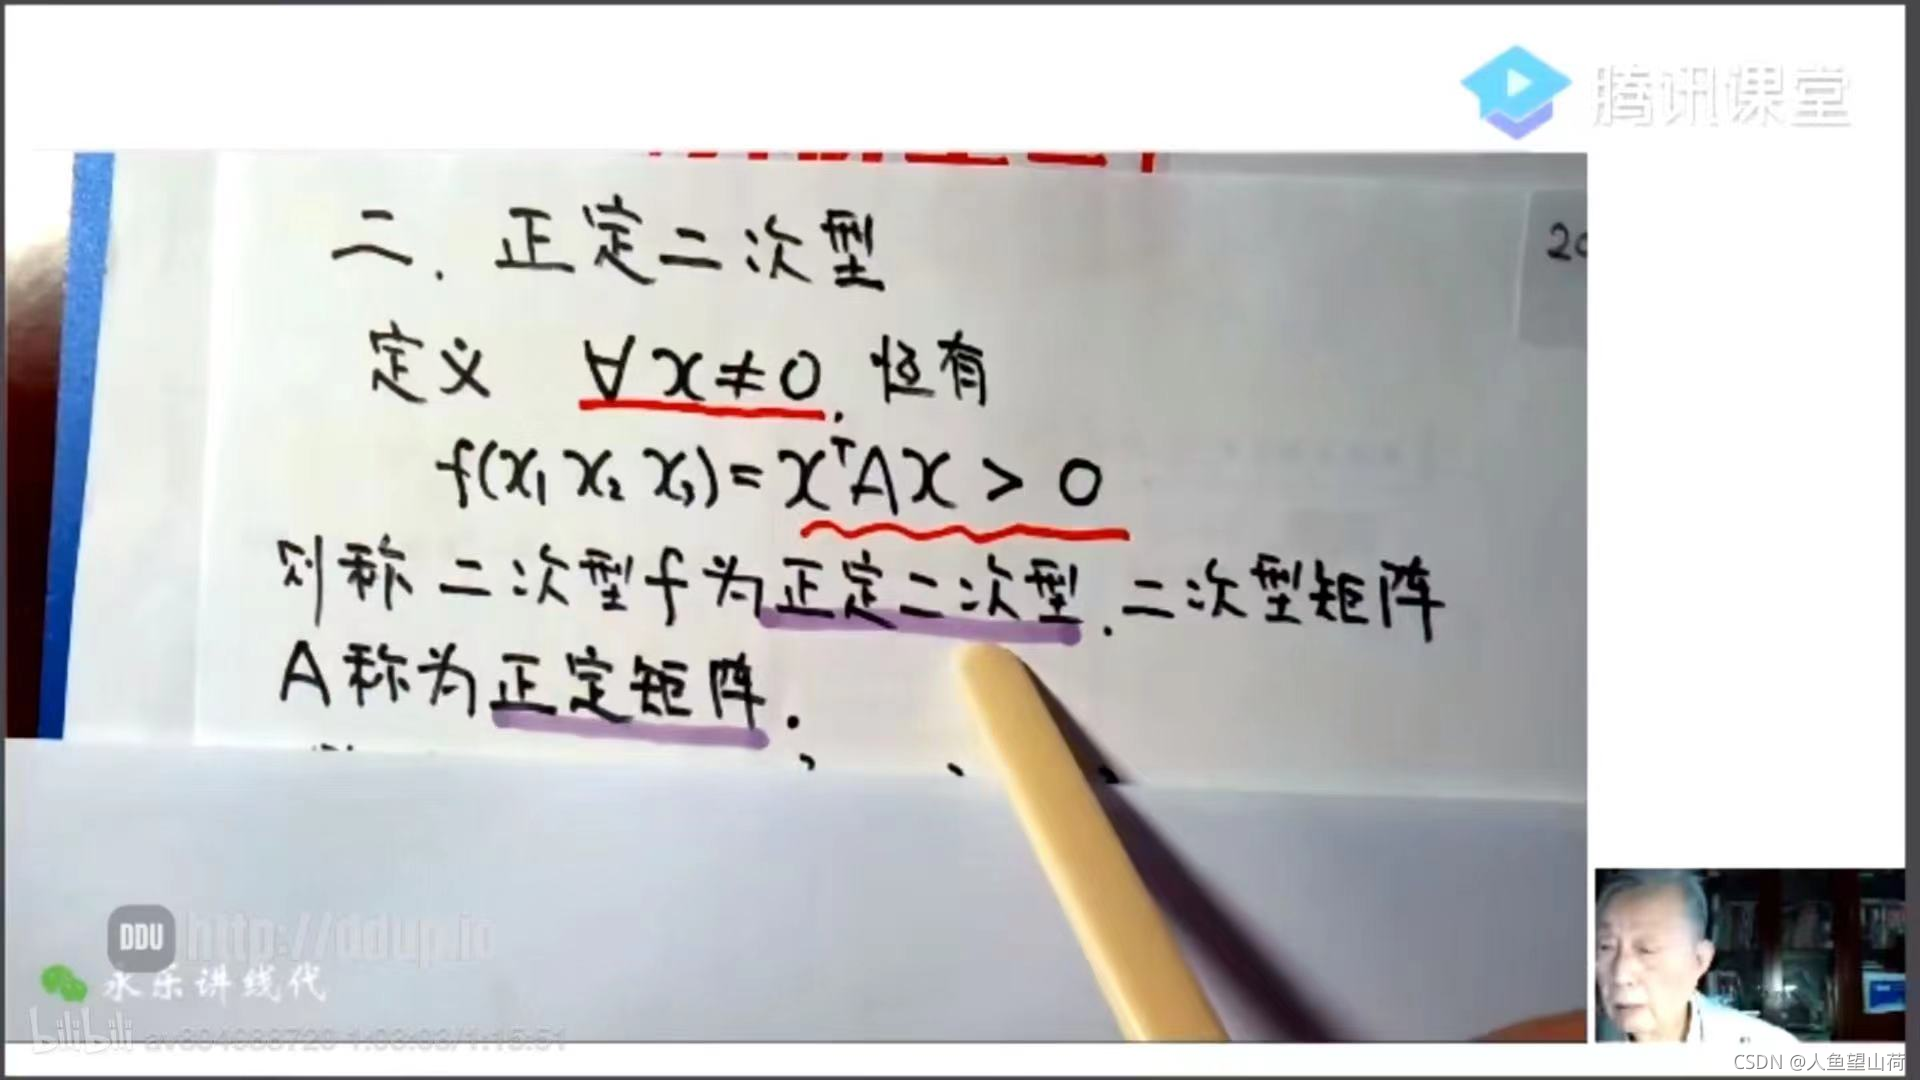 腾讯课堂
二. 正定二次型
20
定义 ∀x≠0, 恒有
f(x₁ x₂ x₃)=xᵀAx > 0
则称二次型f为正定二次型.二次型矩阵
A称为正定矩阵.
DDU http://ddup.io
永乐讲线代
bilibili
1:15:51
CSDN @人鱼望山荷